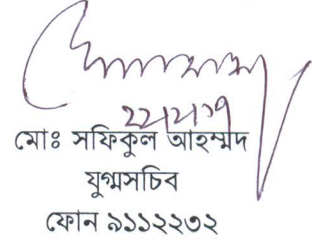 ২২/২/১৭
মোঃ সফিকুল আহম্মদ
যুগ্মসচিব
ফোন ৯১১২২৩২